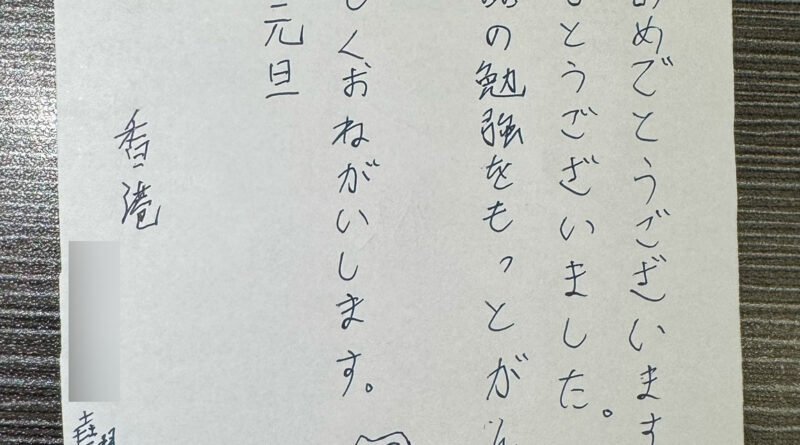 めでとうございます
とうございました。
の勉強をもっとが
くおねがいします。
元旦
香港